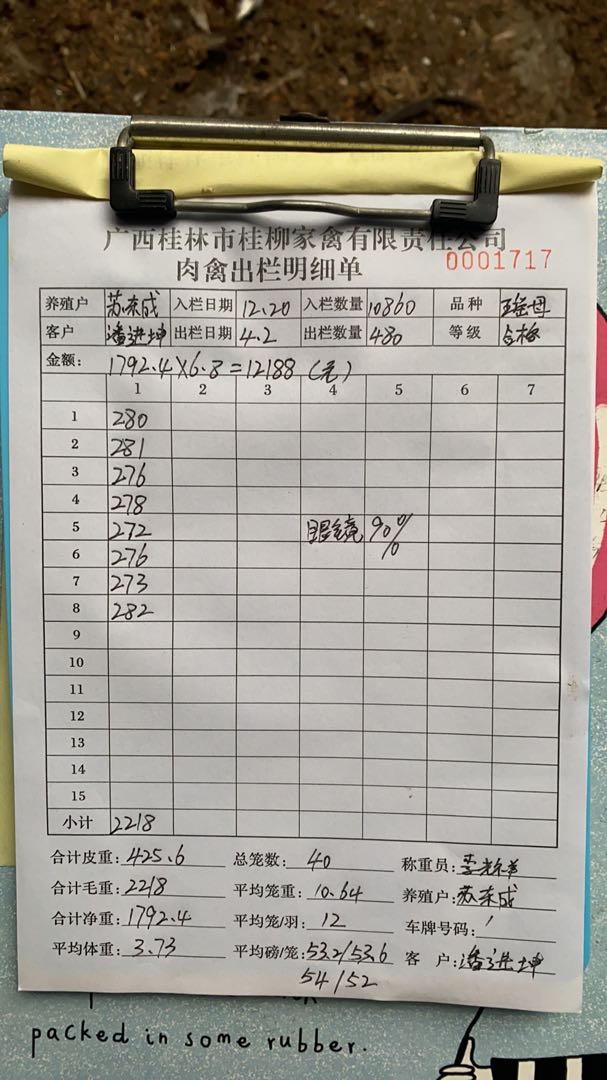 广西桂林市桂柳家禽有限责任公司
肉禽出栏明细单
0001717
养殖户 苏东成 入栏日期 12.20 入栏数量 10860 品种 瑶母
客户 潘进坤 出栏日期 4.2 出栏数量 480 等级 合格
金额: 1792.4×6.8=12188(元)
1 2 3 4 5 6 7
1 280
2 281
3 276
4 278
5 272 眼镜 90%
6 276
7 273
8 282
9
10
11
12
13
14
15
小计 2218
合计皮重: 425.6 总笼数: 40 称重员: 李
合计毛重: 2218 平均笼重: 10.64 养殖户: 苏东成
合计净重: 1792.4 平均笼/羽: 12 车牌号码: /
平均体重: 3.73 平均磅/笼: 53.2/53.6 客 户: 潘进坤
54/52
packed in some rubber.